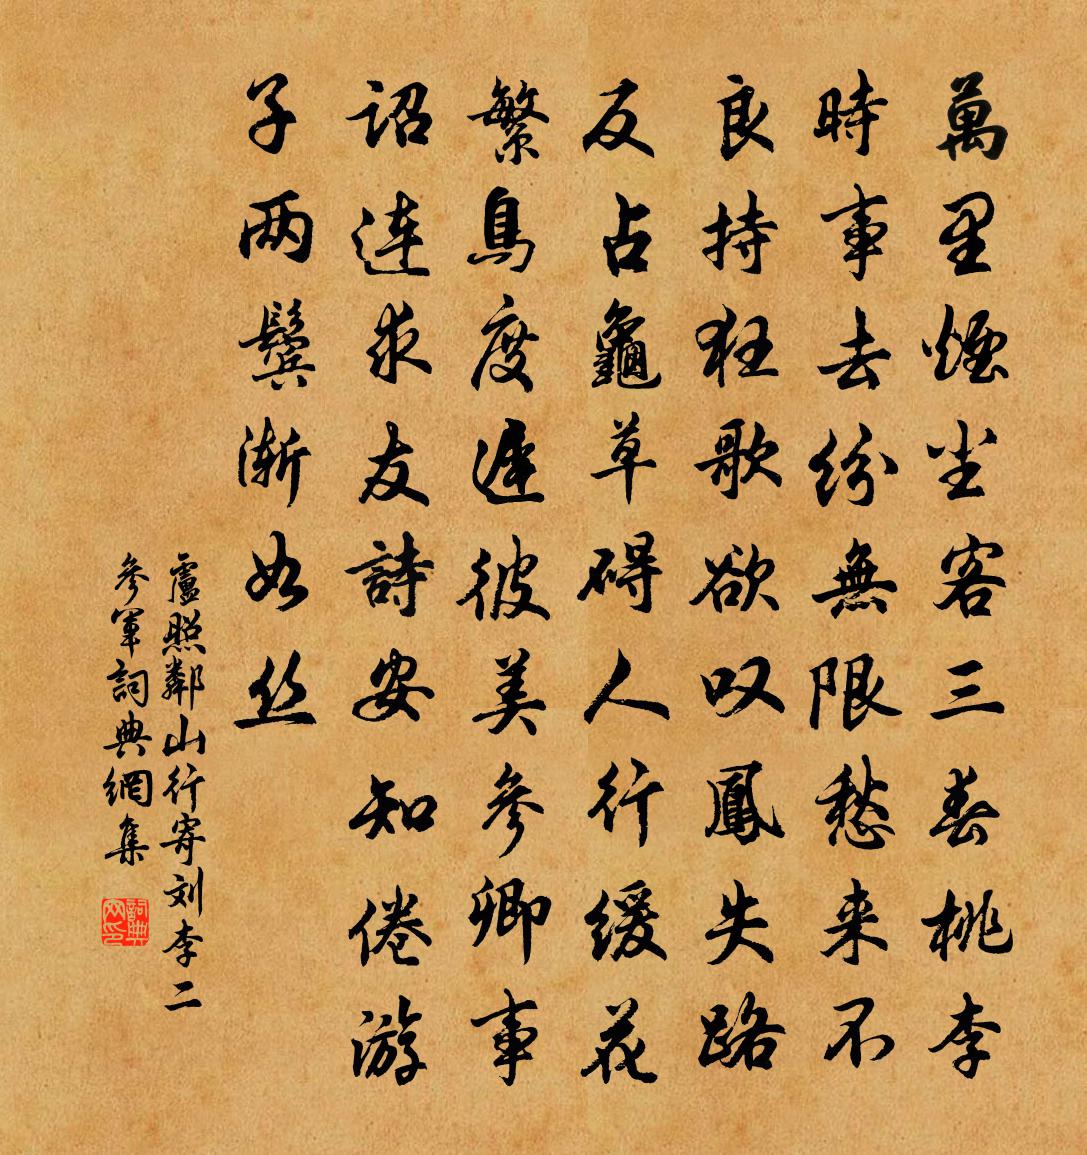 萬里煙尘客三春桃李
時事去紛無限愁来不
良持狂歌欲叹鳳失路
反占龜草碍人行缓花
繁鳥度遲彼美參卿事
诏连求友詩安知倦游
子两鬢渐如丝
盧照鄰山行寄刘李二
參軍詞典網集
詞典
网印